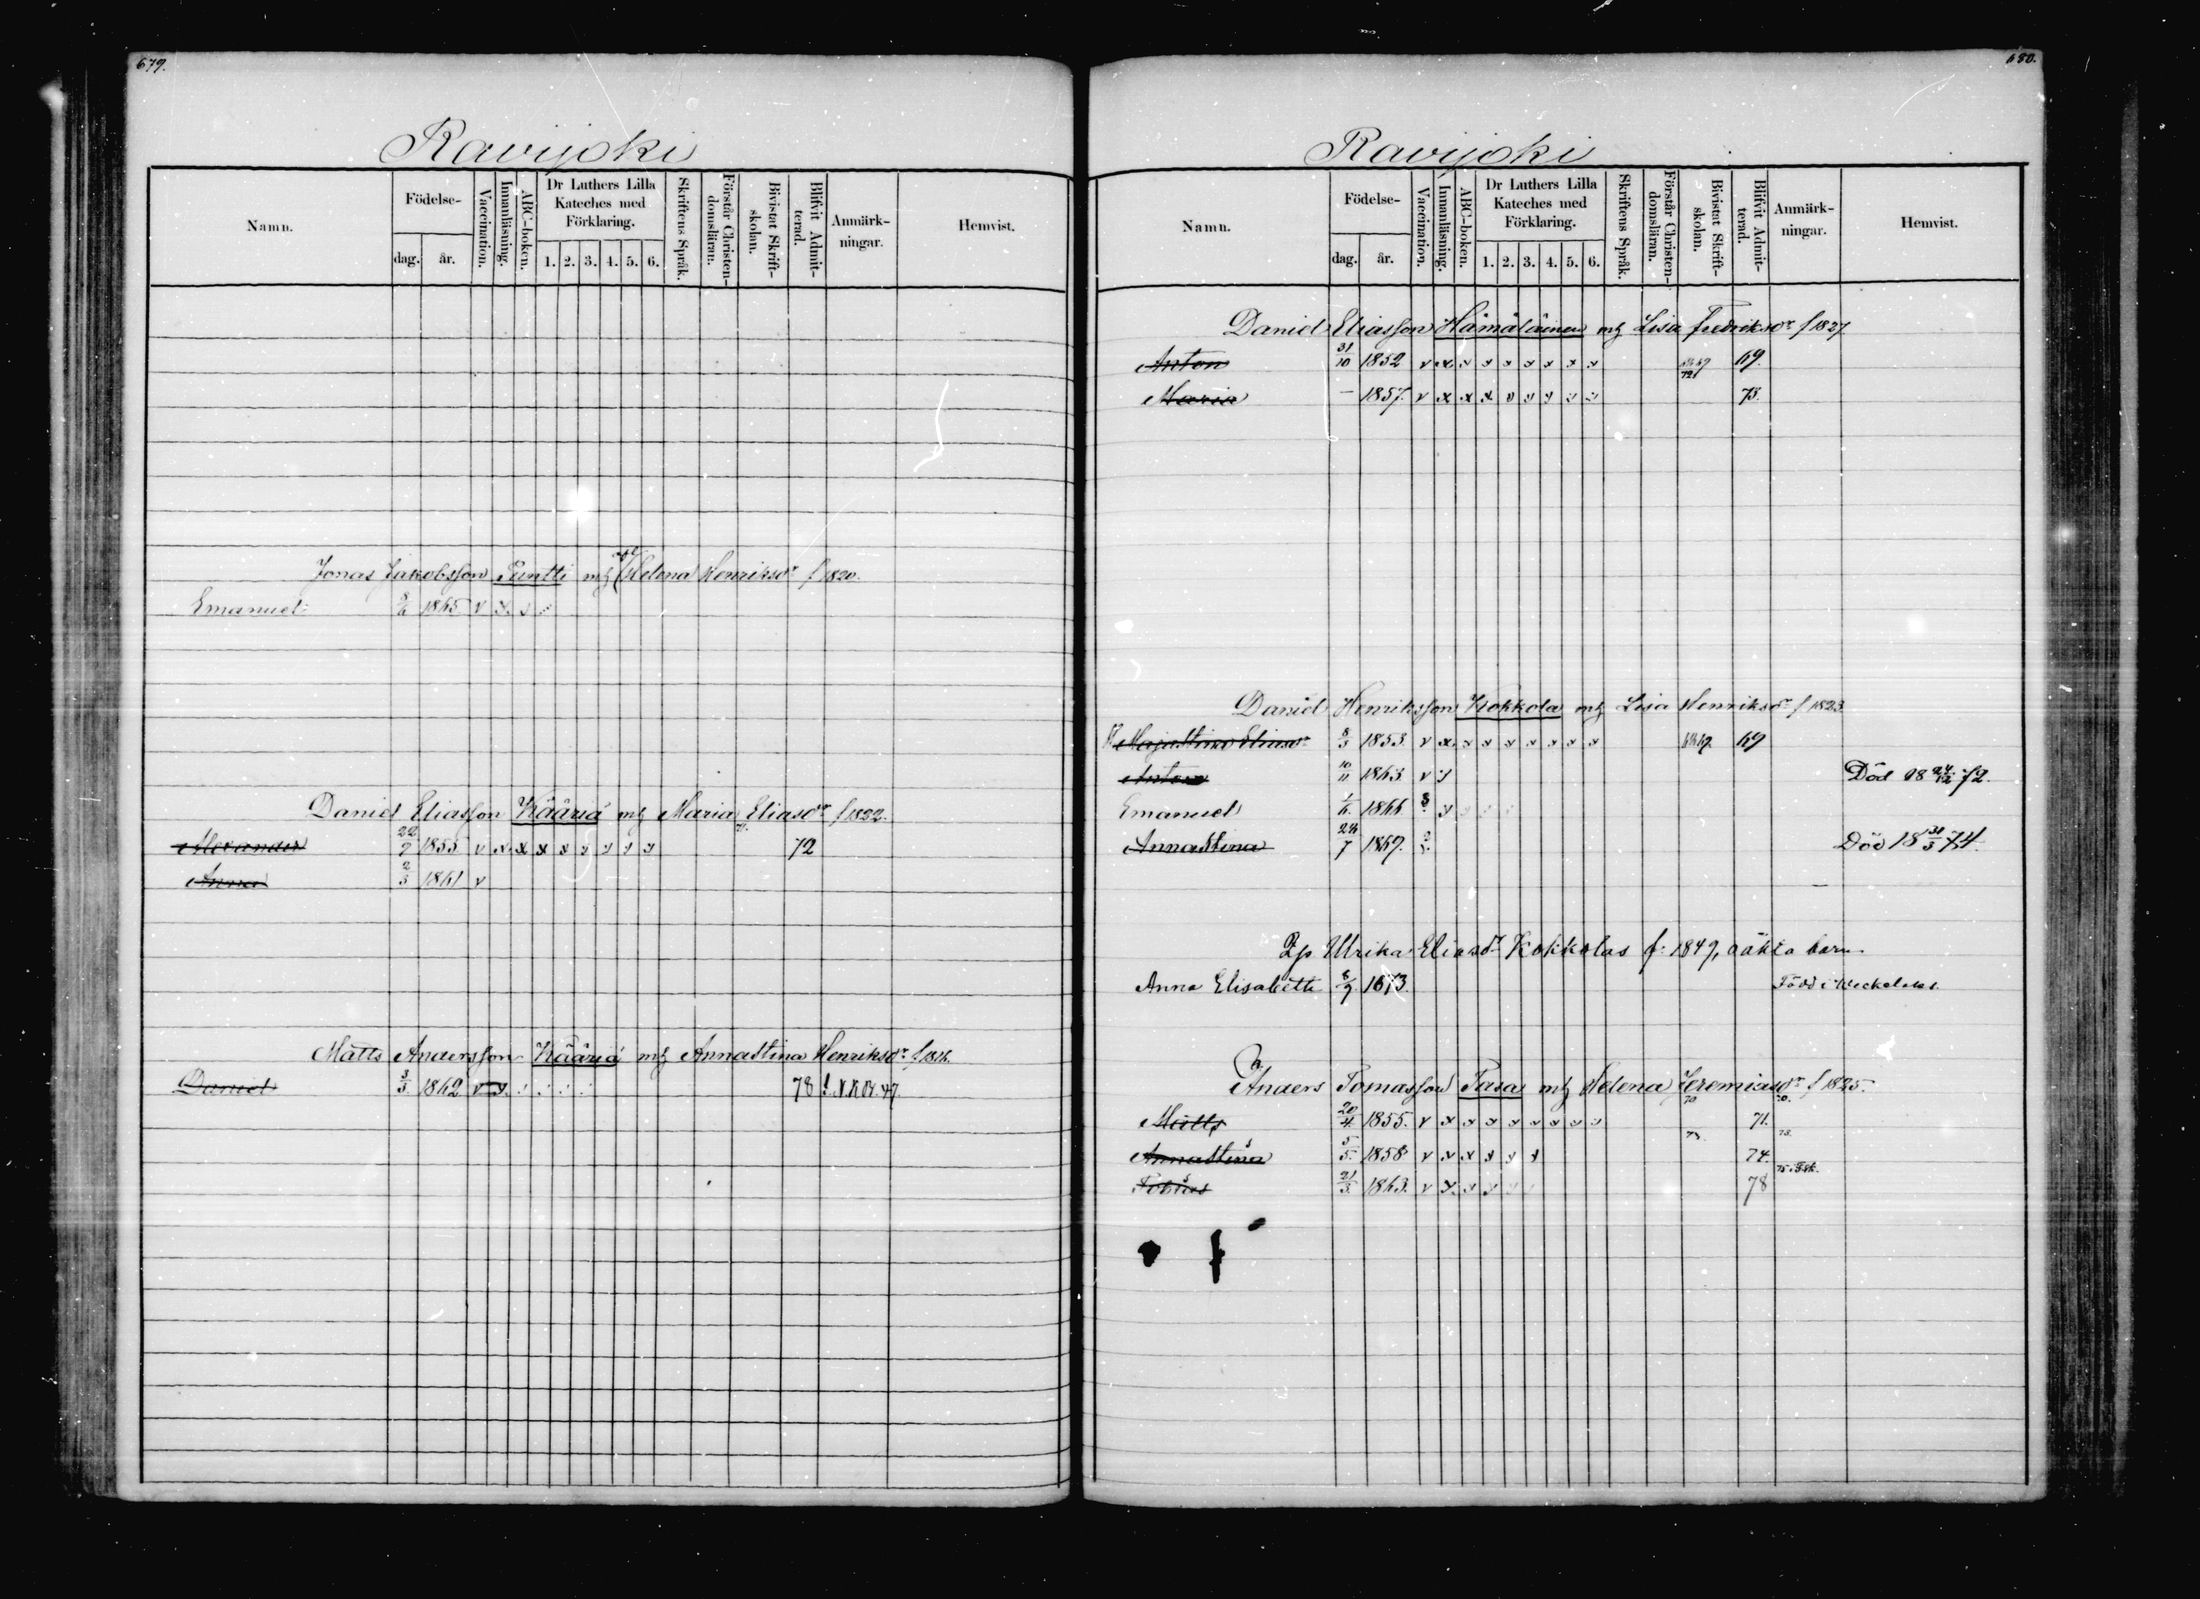 679.
Ravijoki
Namn. Födelse- dag. år. Vaccination. Innanläsning. ABC-boken. Dr Luthers Lilla Kateches med Förklaring. 1. 2. 3. 4. 5. 6. Skriftens Språk. Förstår Christen-domsläran. Bivistat Skrift-skolan. Blifvit Admit-terad. Anmärk-ningar. Hemvist.
Jonas Jakobsson Puntti mh Helena Henriksdr f 1820.
Emanuel 1865 v
Daniel Eliasson Kääriä mh Maria Eliasdr f 1822.
Alexander 22/9 1855 v x x x x v v v v 72
Anna 2/3 1861 v
Matts Andersson Kääriä mh Annastina Henriksdr
Daniel 3/3 1862 v 78
680.
Ravijoki
Namn. Födelse- dag. år. Vaccination. Innanläsning. ABC-boken. Dr Luthers Lilla Kateches med Förklaring. 1. 2. 3. 4. 5. 6. Skriftens Språk. Förstår Christen-domsläran. Bivistat Skrift-skolan. Blifvit Admit-terad. Anmärk-ningar. Hemvist.
Daniel Eliasson Hämäläinen mh Lisa Fredriksdr f 1827
Anton 31/10 1852 69.
Maria – 1857. 73.
Daniel Henriksson Kokkola mh Lisa Henriksdr f 1823
Majastina Eliasdr 8/3 1853 69
Anton 10/11 1863 v Död 18 24/12 72.
Emanuel 1/6 1866
Annastina 26/7 1869. Död 18 31/3 74.
Ulrika Eliasdr Kokkolas f. 1849, oäkta barn
Anna Elisabeth 8/9 1873 Född i Weckelaks.
Anders Tomasson Pasa mh Helena Jeremiasdr f 1825.
Matts 20/4 1855. 70 71.
Annastina 5/5 1858 73. 74.
Tobias 21/3 1863. 78